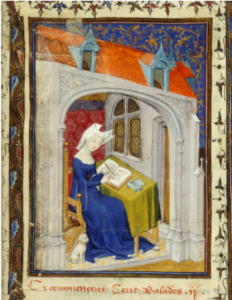 Cy commencent Cent Balades . ij